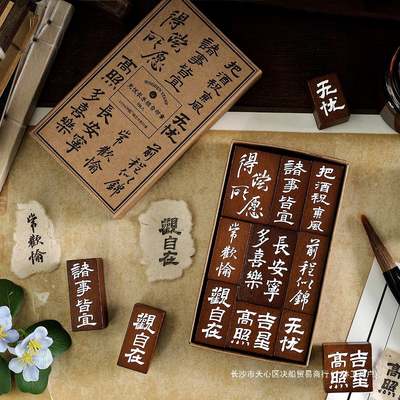 把酒祝東風
諸事皆宜
得償所愿
无忧
前程似錦
長安寧
多喜樂
常歡愉
高照
无忧
把酒祝東風
諸事皆宜
得償所愿
前程似錦
長安寧
多喜樂
常歡愉
无忧
吉星高照
觀自在
常歡愉
觀自在
諸事皆宜
觀自在
吉星高照
长沙市天心区决船贸易商行